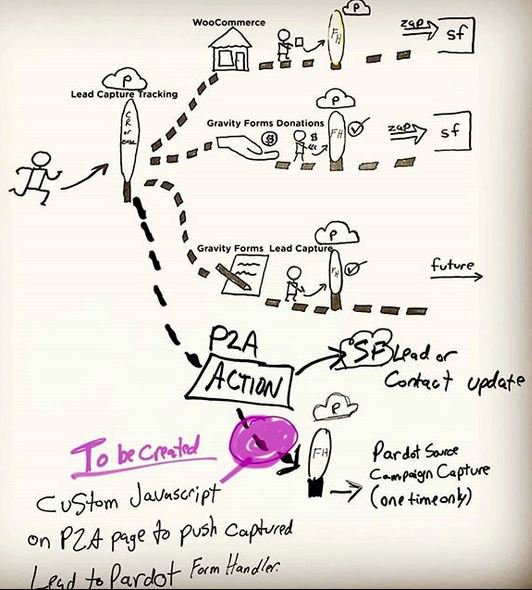 WooCommerce
P
FH
zap
sf
P
Lead Capture Tracking
Gravity Forms Donations
$
$
P
FH
zap
sf
Gravity Forms Lead Capture
P
FH
future
P2A
ACTION
SF Lead or
Contact update
P
FH
To be Created
Pardot Source
Campaign Capture
(one time only)
Custom Javascript
on P2A page to push captured
Lead to Pardot Form Handler.